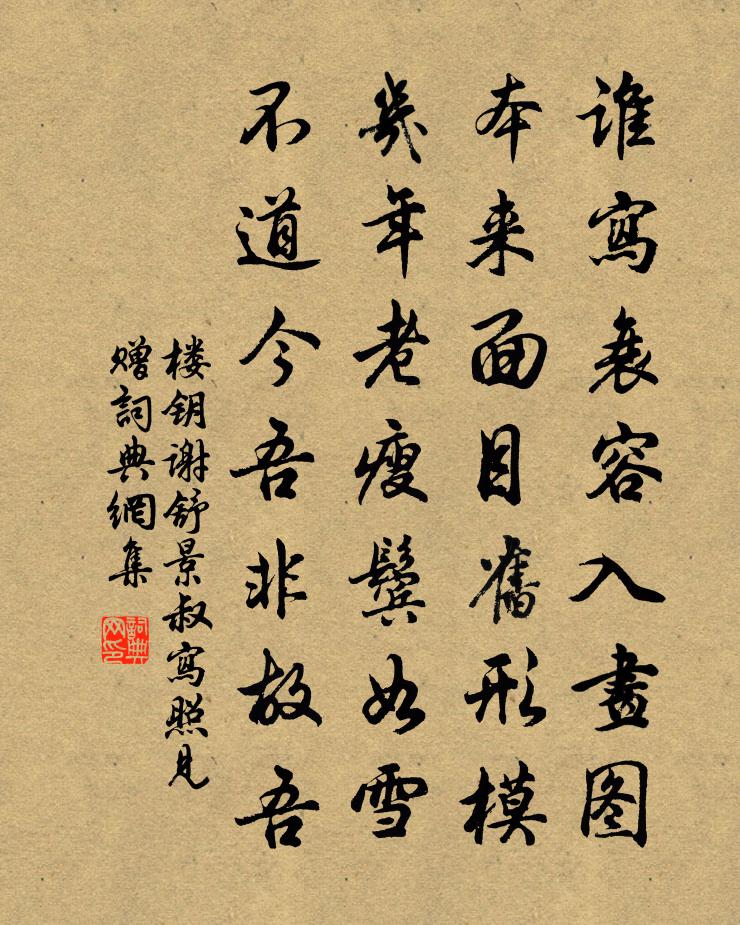 誰寫衰容入畫图
本来面目舊形模
幾年老瘦鬓如雪
不道今吾非故吾
楼钥谢舒景叔寫照見
赠詞典網集
詞典
网印